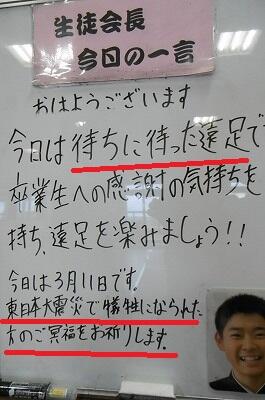 生徒会長
今日の一言
おはようございます
今日は待ちに待った遠足で
卒業生への感謝の気持ちを
持ち、遠足を楽みましょう!!
今日は3月11日です。
東日本大震災で犠牲になられた
方のご冥福をお祈りします。